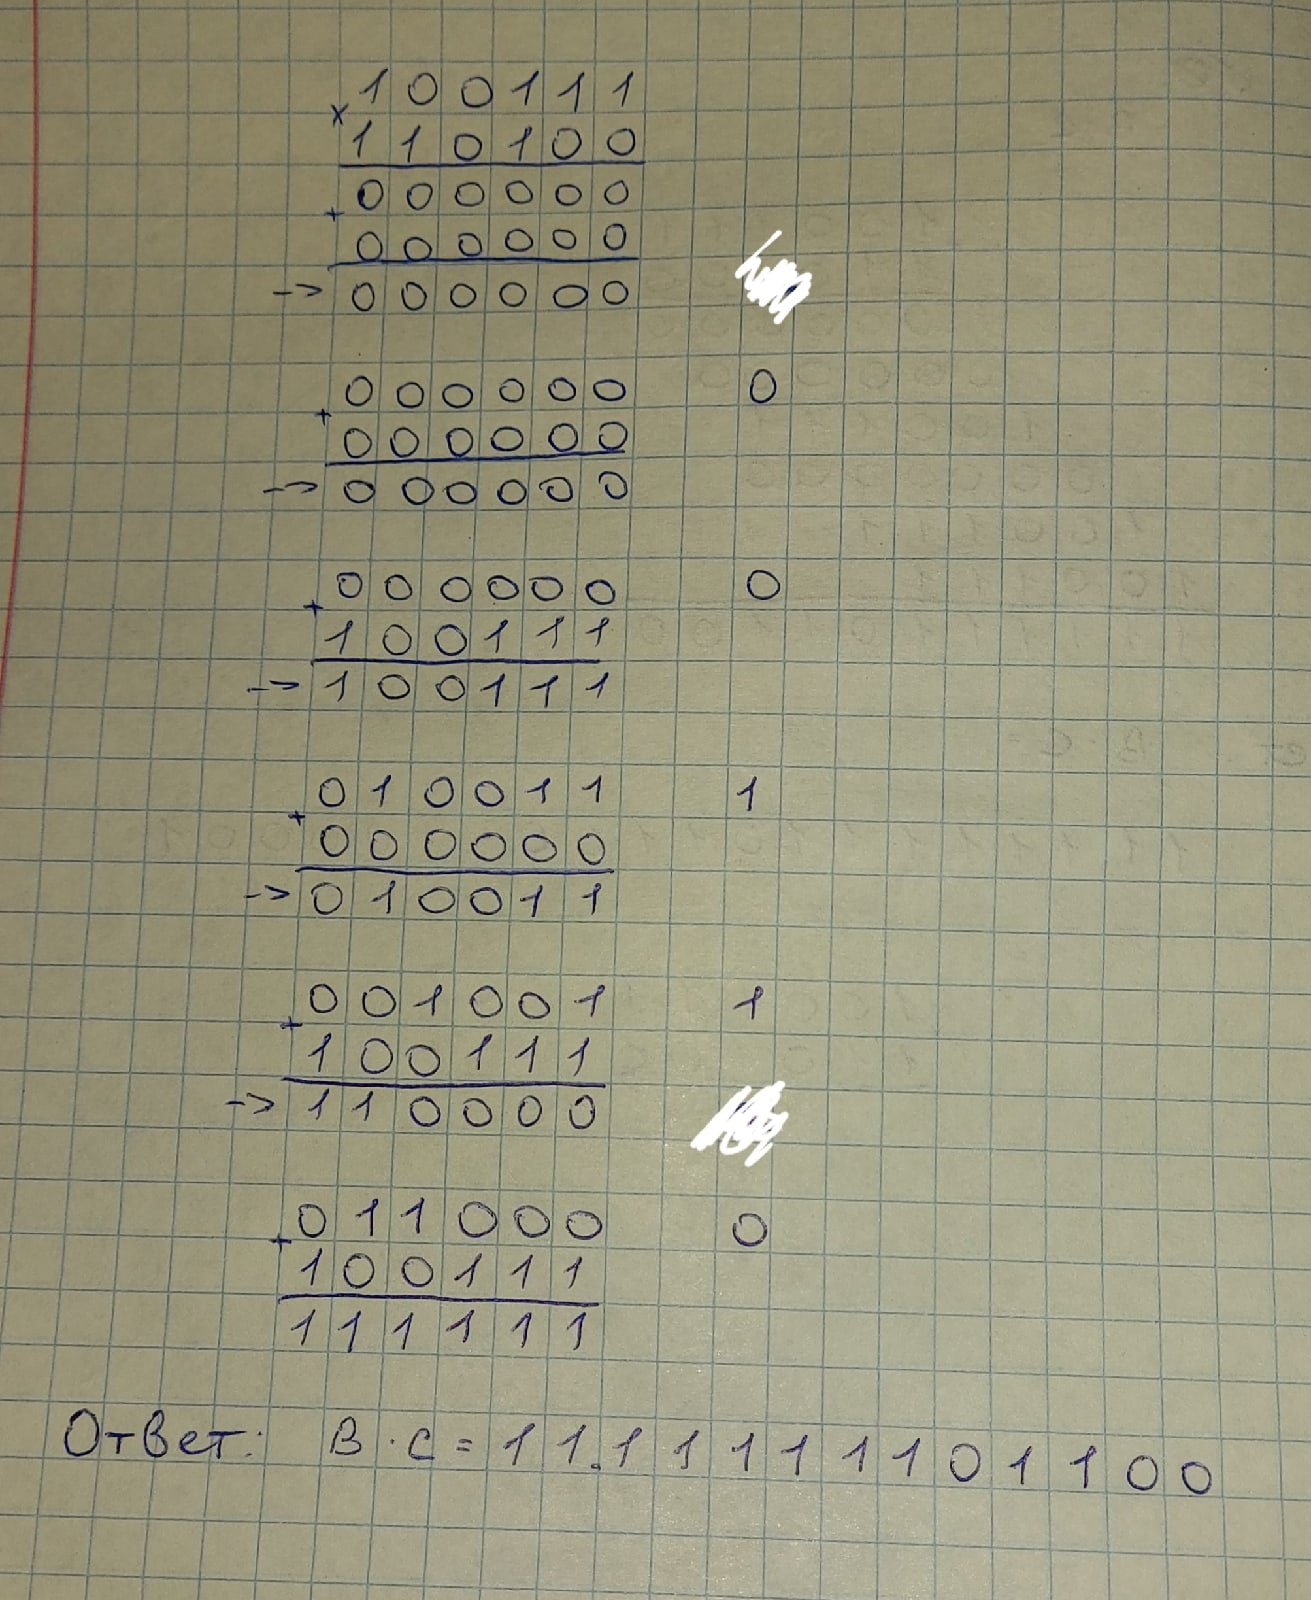 100111
× 110100
000000
+ 000000
-> 000000
000000 0
+ 000000
-> 000000
000000 0
+ 100111
-> 100111
010011 1
+ 000000
-> 010011
001001 1
+ 100111
-> 110000
011000 0
+ 100111
111111
Ответ: B · C = 11.11111101100